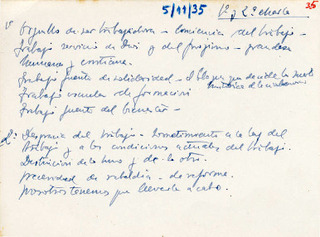 5/11/35 1ª y 2ª charla 25
1º Orgullo de ser trabajadores – conciencia del trabajo –
trabajo servicio de Dios y del prójimo – grandeza
humana y cristiana.
Trabajo fuente de solidaridad –
Trabajo escuela de formación
Trabajo fuente del bienestar –
2º: Desgracia del trabajo – sometimiento a la ley del
trabajo y a las condiciones actuales del trabajo.
Distinción de lo uno y de lo otro.
necesidad de rebeldía – de reforma.
nosotros tenemos que llevarla a cabo.